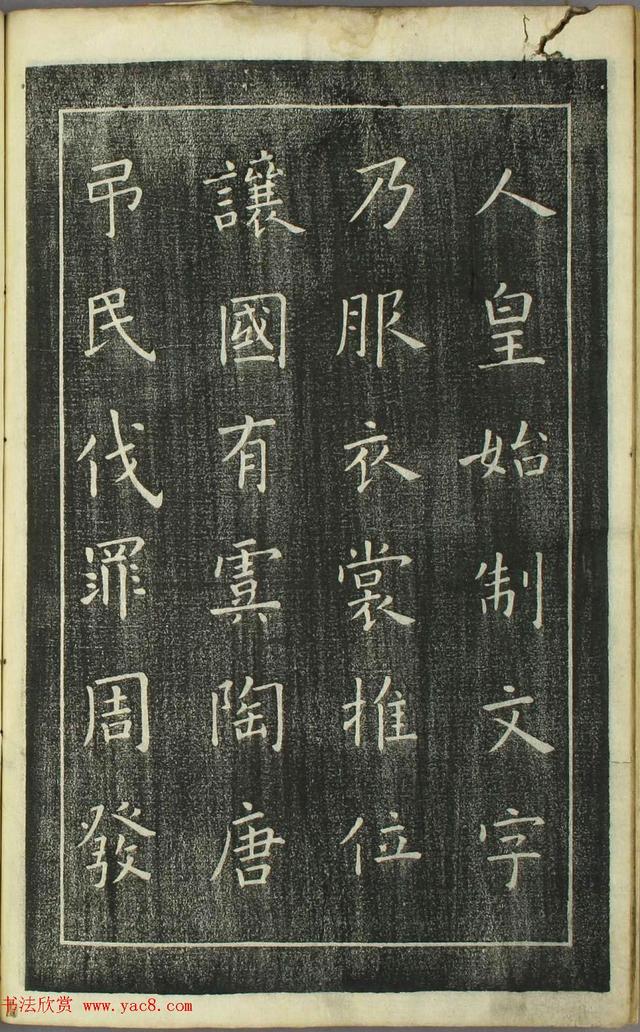 人皇始制文字
乃服衣裳推位
讓國有虞陶唐
弔民伐罪周發
书法欣赏 www.yac8.com